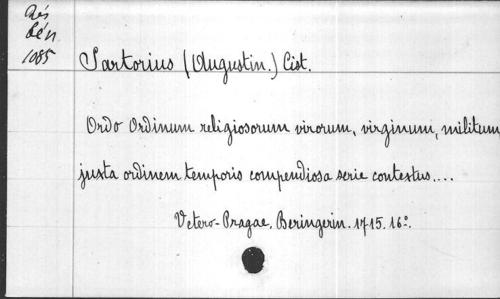 Rés
Bén
1085
Sartorius (Augustin.) Cist.
Ordo Ordinum religiosorum virorum, virginum, militum
juxta ordinem temporis compendiosa serie contextus....
Vetero-Pragae, Beringerin. 1715. 16°.